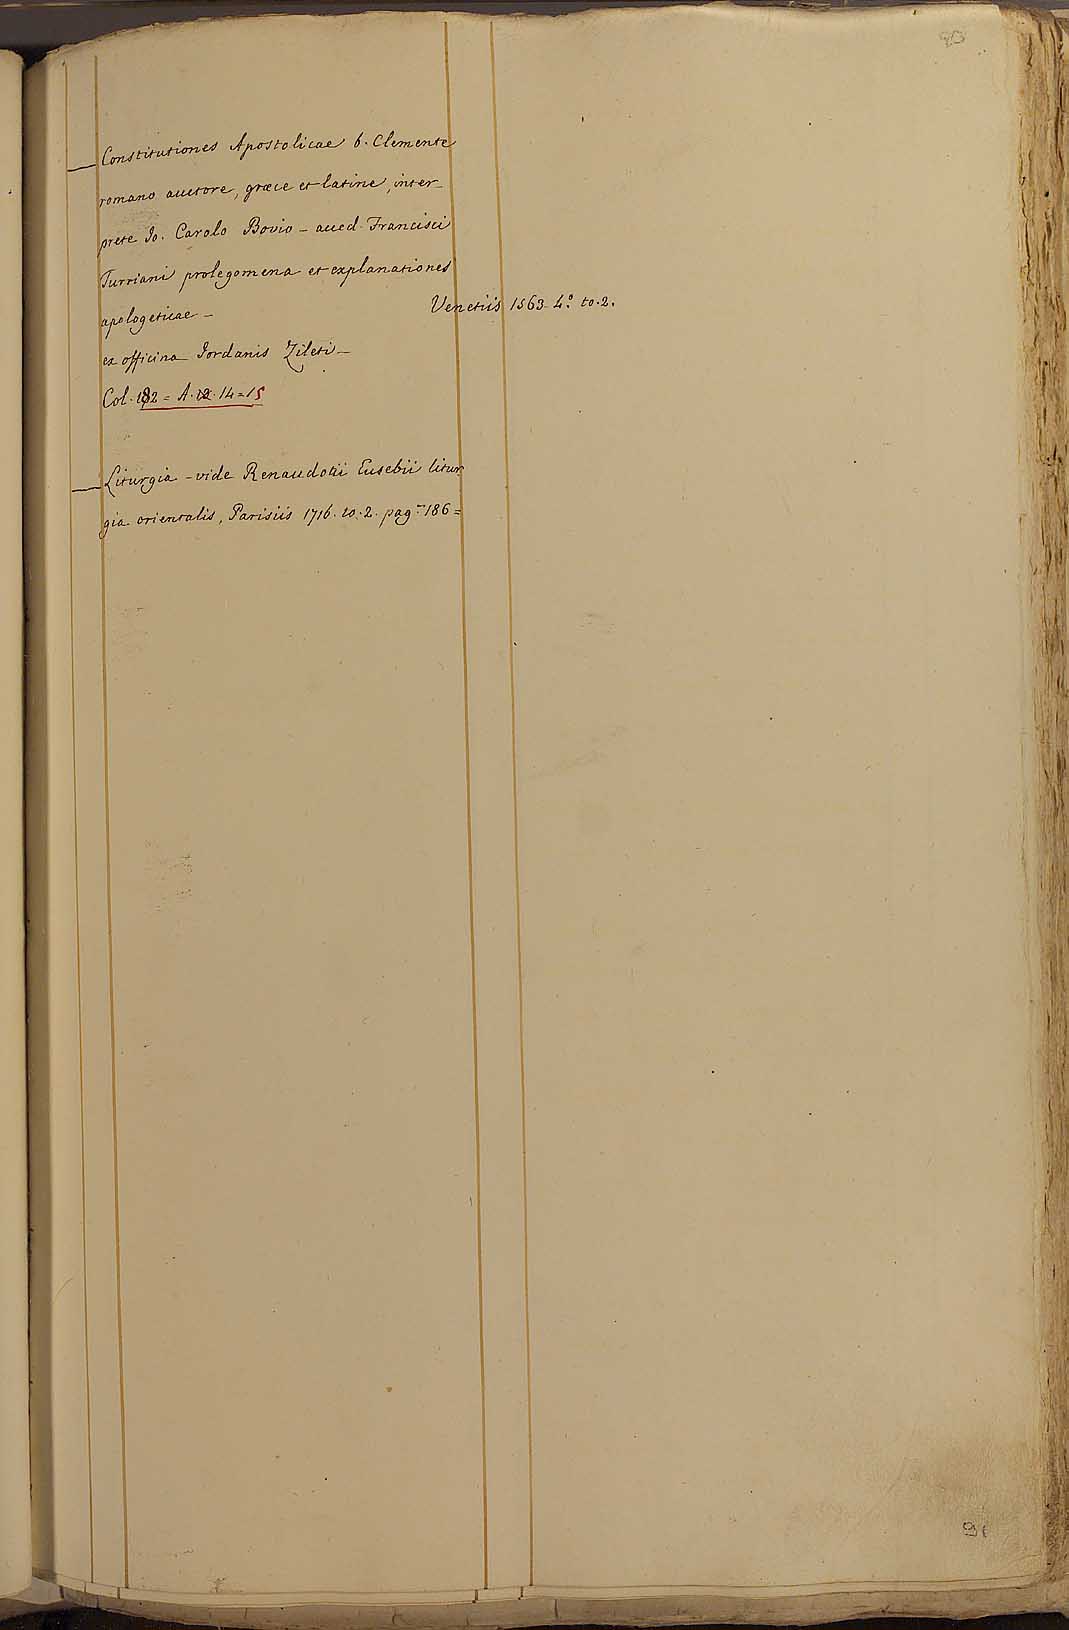 — Constitutiones Apostolicae b. Clemente
romano auctore, græce et latine, inter-
prete Jo. Carolo Bovio - acced. Francisci
Turriani prolegomena et explanationes
apologeticae - Venetiis 1563. 4.º to. 2.
ex officina Jordanis Zileti -
Col. 182 = A. 12. 14 = 15
— Liturgia - vide Renaudotii Eusebii litur
gia orientalis, Parisiis 1716. to. 2. pag. 186 =
91